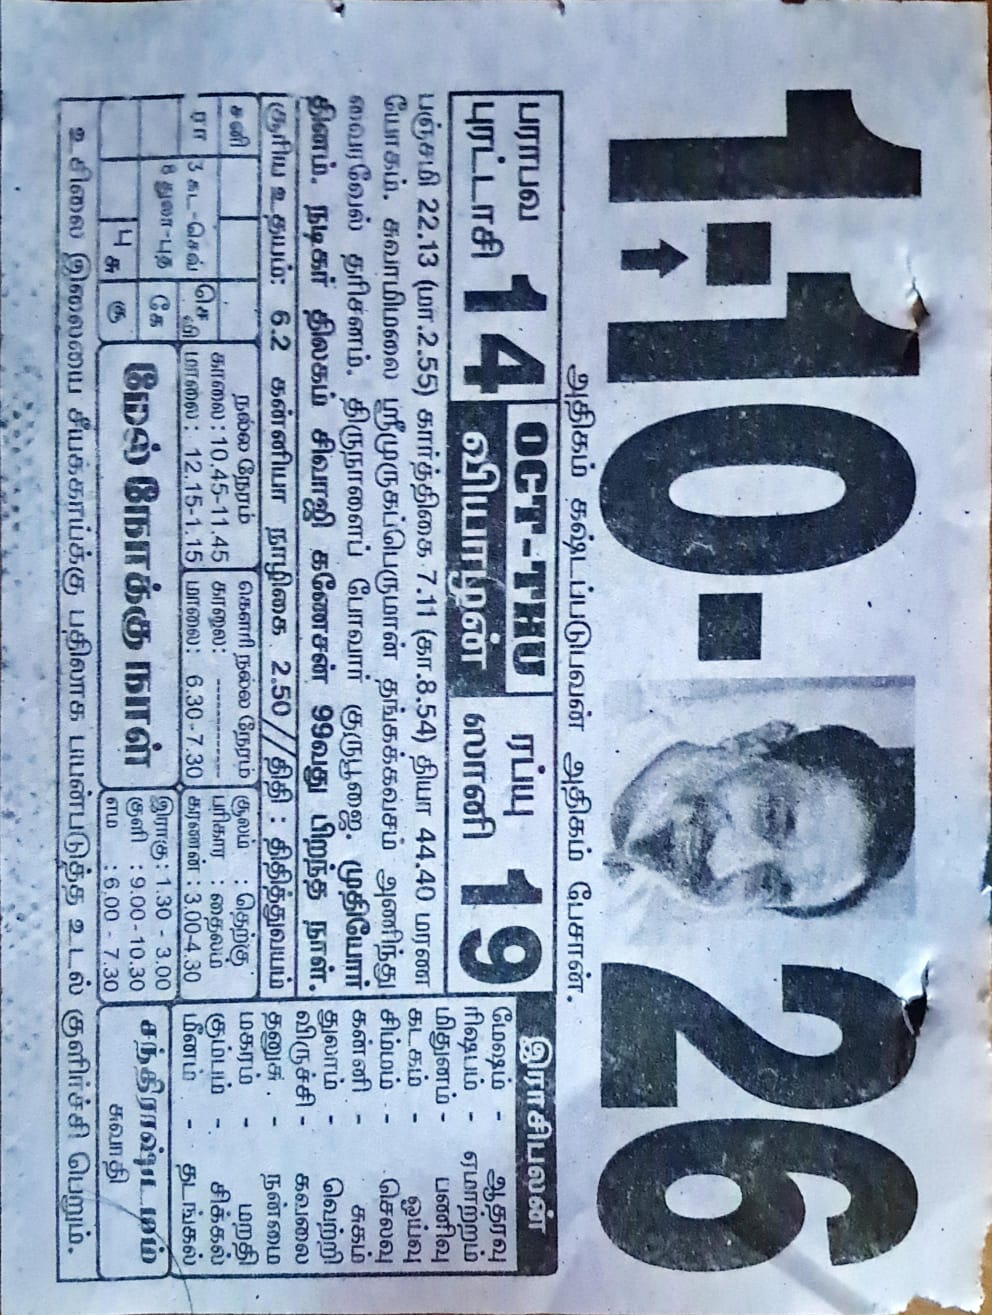 1-10-26
அதிகம் கஷ்டப்படுபவன் அதிகம் பேசான்.
பராபவ
புரட்டாசி 14
OCT-THU
வியாழன்
ரப்யு
ஸானி 19
பஞ்சமி 22.13 (மா.2.55) கார்த்திகை 7.11 (கா.8.54) தியா 44.40 மரண
யோகம். சுவாமிமலை ஸ்ரீமுருகப்பெருமான் தங்கக்கவசம் அணிந்து
வைரவேல் தரிசனம். திருநாளைப் போவார் குருபூஜை. முதியோர்
தினம். நடிகர் திலகம் சிவாஜி கணேசன் 99வது பிறந்த நாள்.
சூரிய உதயம்: 6.2 கன்னியா நாழிகை 2.50//திதி : திதித்துவயம்
இராசிபலன்
மேஷம் - ஆதரவு
ரிஷபம் - ஏமாற்றம்
மிதுனம் - பணிவு
கடகம் - ஓய்வு
சிம்மம் - செலவு
கன்னி - சுகம்
துலாம் - வெற்றி
விருச்சி - கவலை
தனுசு - நன்மை
மகரம் - மறதி
கும்பம் - சிக்கல்
மீனம் - தடங்கல்
சனி
ரா 3 கட-செவ் செ
8 துலா-புத கே
4 சு கு
நல்ல நேரம்
காலை : 10.45-11.45
மாலை : 12.15-1.15
கௌரி நல்ல நேரம்
காலை: ----------
மாலை: 6.30-7.30
சூலம் : தெற்கு
பரிகார : தைலம்
கரணன் : 3.00-4.30
மேல் நோக்கு நாள்
இராகு : 1.30 - 3.00
குளி : 9.00 - 10.30
எம : 6.00 - 7.30
சந்திராஷ்டமம்
சுவாதி
உசிலை இலையை சீயக்காய்க்கு பதிலாக பயன்படுத்த உடல் குளிர்ச்சி பெறும்.